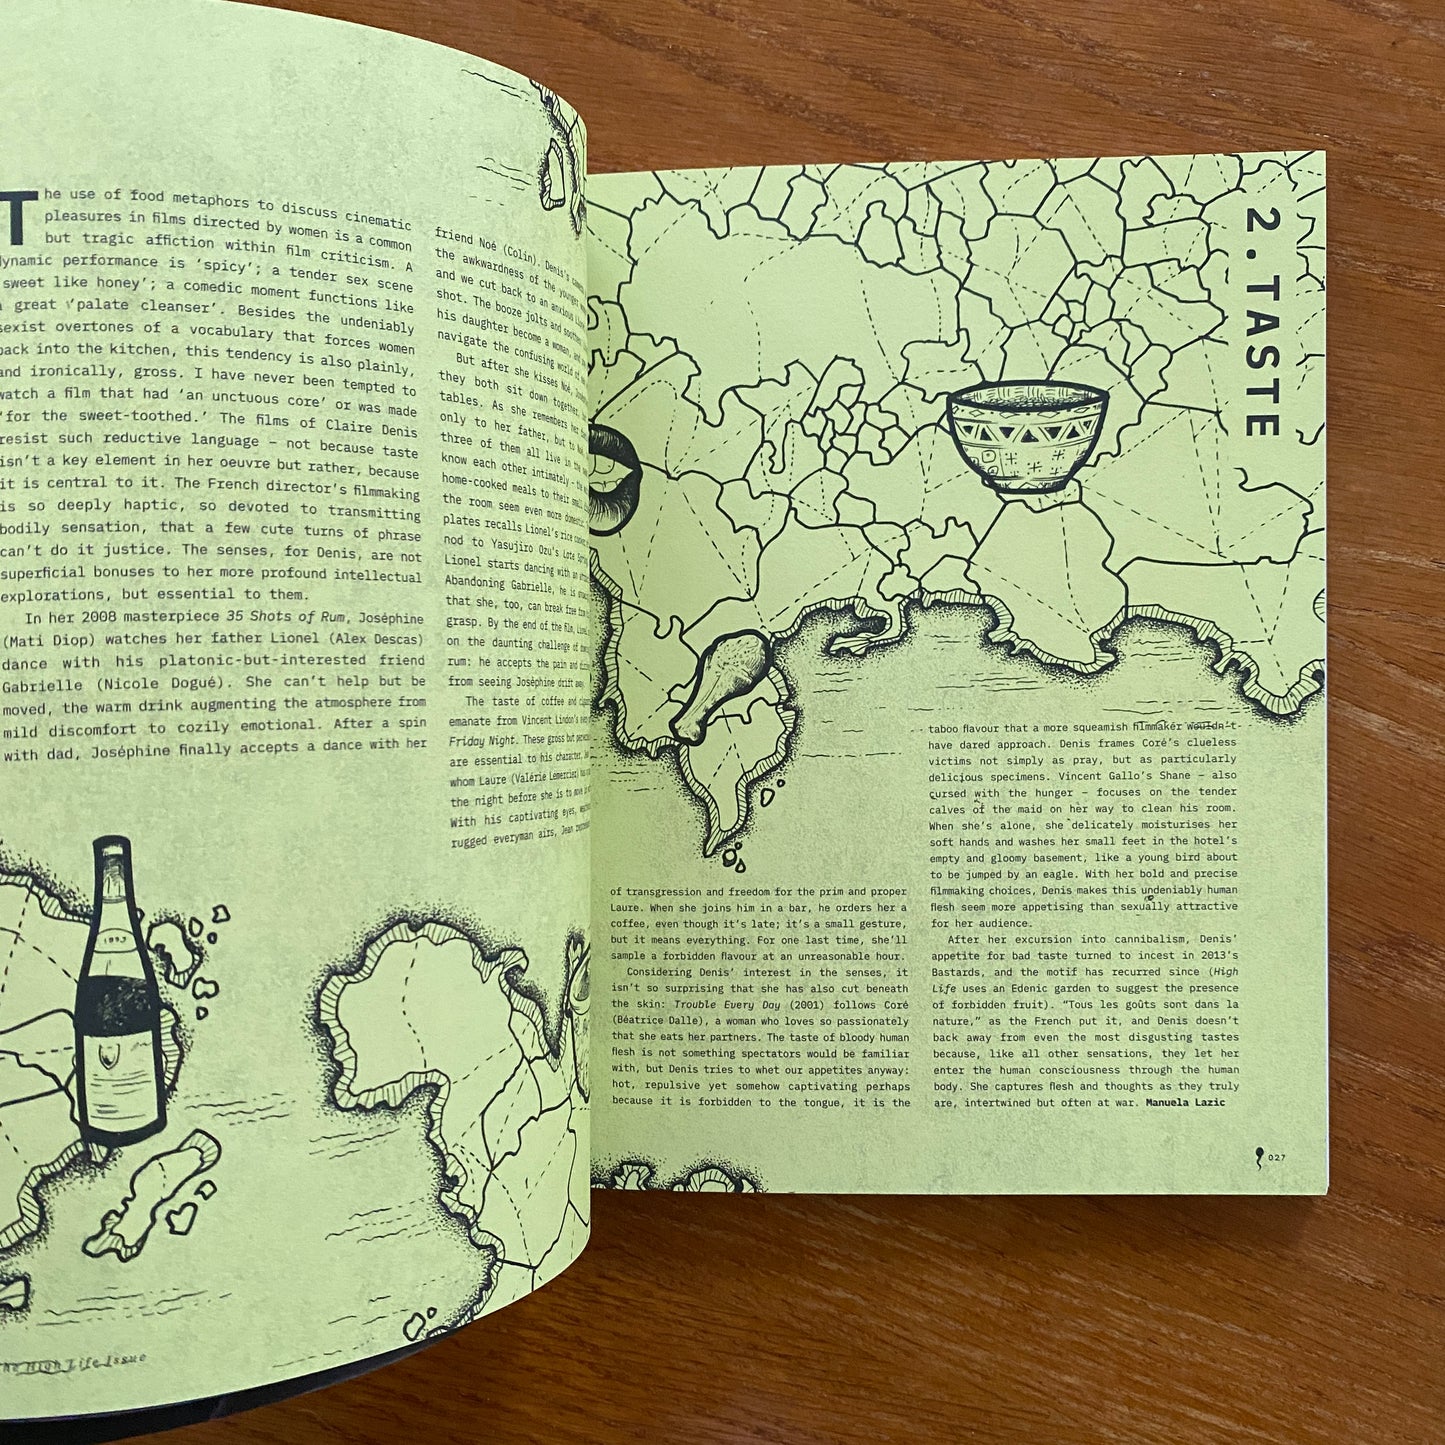 The use of food metaphors to discuss cinematic
pleasures in films directed by women is a common
but tragic affiction within film criticism. A
dynamic performance is ‘spicy’; a tender sex scene
‘sweet like honey’; a comedic moment functions like
a great ‘palate cleanser’. Besides the undeniably
sexist overtones of a vocabulary that forces women
back into the kitchen, this tendency is also plainly,
and ironically, gross. I have never been tempted to
watch a film that had ‘an unctuous core’ or was made
‘for the sweet-toothed.’ The films of Claire Denis
resist such reductive language – not because taste
isn’t a key element in her oeuvre but rather, because
it is central to it. The French director’s filmmaking
is so deeply haptic, so devoted to transmitting
bodily sensation, that a few cute turns of phrase
can’t do it justice. The senses, for Denis, are not
superficial bonuses to her more profound intellectual
explorations, but essential to them.
In her 2008 masterpiece 35 Shots of Rum, Joséphine
(Mati Diop) watches her father Lionel (Alex Descas)
dance with his platonic-but-interested friend
Gabrielle (Nicole Dogué). She can’t help but be
moved, the warm drink augmenting the atmosphere from
mild discomfort to cozily emotional. After a spin
with dad, Joséphine finally accepts a dance with her
friend Noé (Colin). Denis’s
the awkwardness of the younger
and we cut back to an anxious Lionel
shot. The booze jolts and soothes
his daughter become a woman, and
navigate the confusing world of
But after she kisses Noé,
they both sit down together
tables. As she remembers her
only to her father, but to Noé,
three of them all live in the
know each other intimately – the
home-cooked meals to their small
the room seem even more domestic.
plates recalls Lionel’s rice cooker,
nod to Yasujiro Ozu’s Late Spring
Lionel starts dancing with an
Abandoning Gabrielle, he is
that she, too, can break free
grasp. By the end of the film, Lionel
on the daunting challenge of
rum: he accepts the pain and
from seeing Joséphine drift away.
The taste of coffee and
emanate from Vincent Lindon’s
Friday Night. These gross but
are essential to his character,
whom Laure (Valérie Lemercier) has
the night before she is to move
With his captivating eyes,
rugged everyman airs, Jean
The High Life Issue
2.TASTE
of transgression and freedom for the prim and proper
Laure. When she joins him in a bar, he orders her a
coffee, even though it’s late; it’s a small gesture,
but it means everything. For one last time, she’ll
sample a forbidden flavour at an unreasonable hour.
Considering Denis’ interest in the senses, it
isn’t so surprising that she has also cut beneath
the skin: Trouble Every Day (2001) follows Coré
(Béatrice Dalle), a woman who loves so passionately
that she eats her partners. The taste of bloody human
flesh is not something spectators would be familiar
with, but Denis tries to whet our appetites anyway:
hot, repulsive yet somehow captivating perhaps
because it is forbidden to the tongue, it is the
taboo flavour that a more squeamish filmmaker wouldn’t
have dared approach. Denis frames Coré’s clueless
victims not simply as pray, but as particularly
delicious specimens. Vincent Gallo’s Shane – also
cursed with the hunger – focuses on the tender
calves of the maid on her way to clean his room.
When she’s alone, she delicately moisturises her
soft hands and washes her small feet in the hotel’s
empty and gloomy basement, like a young bird about
to be jumped by an eagle. With her bold and precise
filmmaking choices, Denis makes this undeniably human
flesh seem more appetising than sexually attractive
for her audience.
After her excursion into cannibalism, Denis’
appetite for bad taste turned to incest in 2013’s
Bastards, and the motif has recurred since (High
Life uses an Edenic garden to suggest the presence
of forbidden fruit). “Tous les goûts sont dans la
nature,” as the French put it, and Denis doesn’t
back away from even the most disgusting tastes
because, like all other sensations, they let her
enter the human consciousness through the human
body. She captures flesh and thoughts as they truly
are, intertwined but often at war. Manuela Lazic
027